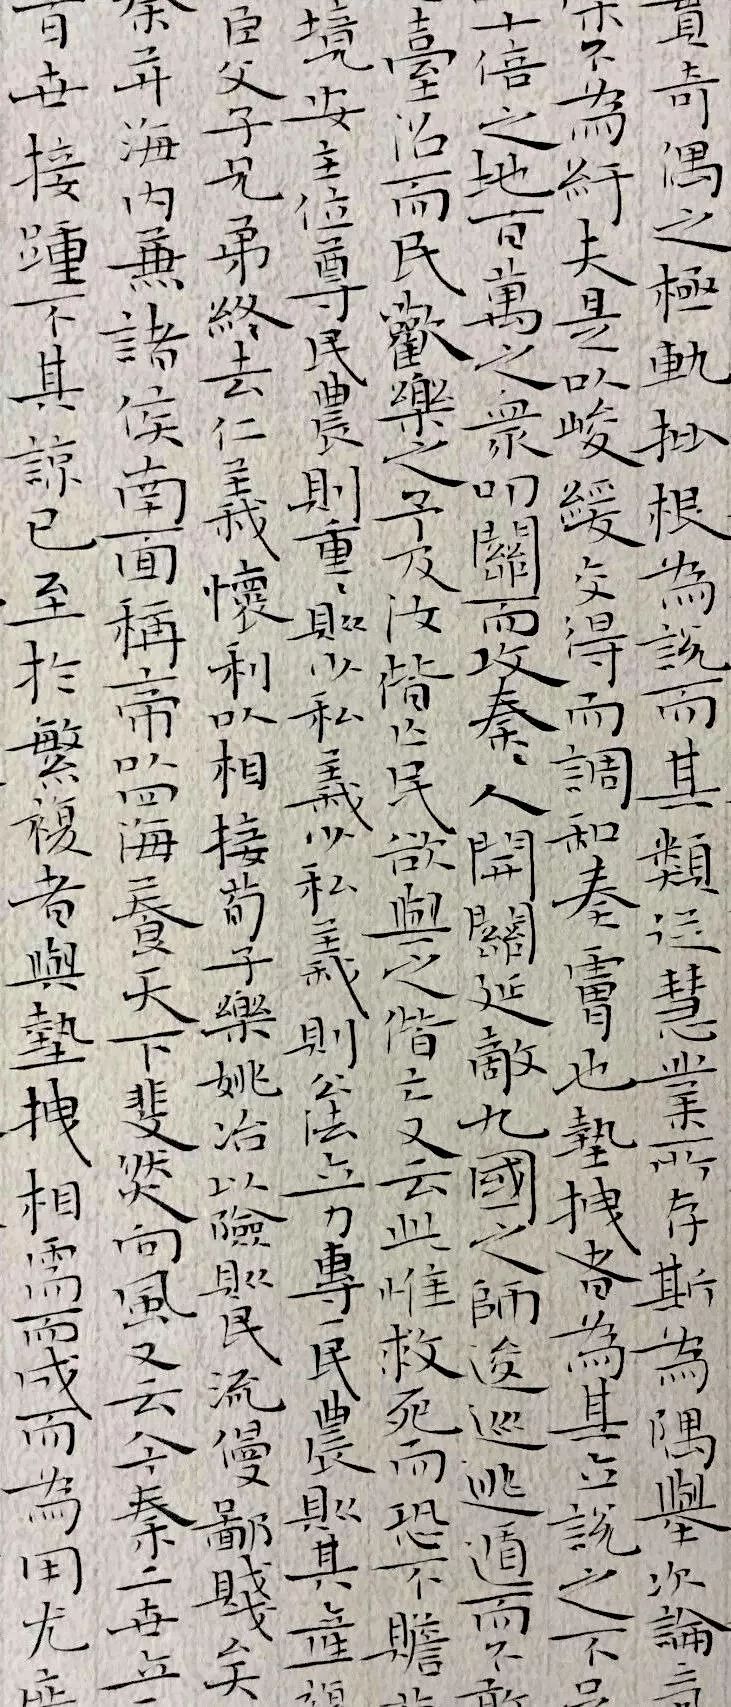 奇偶之極軌批根為說而其類從慧業所存斯為隅舉次論
柔不為紆夫是以峻緩交得而調和奏膚也墊拽者為其立說之不
十倍之地百萬之眾叩關而攻秦〻人開關延敵九國之師逡巡逃遁而不敢
臺沼而民歡樂之予及汝偕亡民欲與之偕亡又云此惟救死而恐不贍
境安主位尊民農則重〻則少私義少私義則公法立力專一民農則其產複
臣父子兄弟終去仁義懷利以相接荀子樂姚冶以險則民流僈鄙賤矣
秦并海內兼諸侯南面稱帝以四海養天下斐然向風又云今秦二世立
百世接踵不其諒已至於繁複者與墊拽相需而成而為用尤